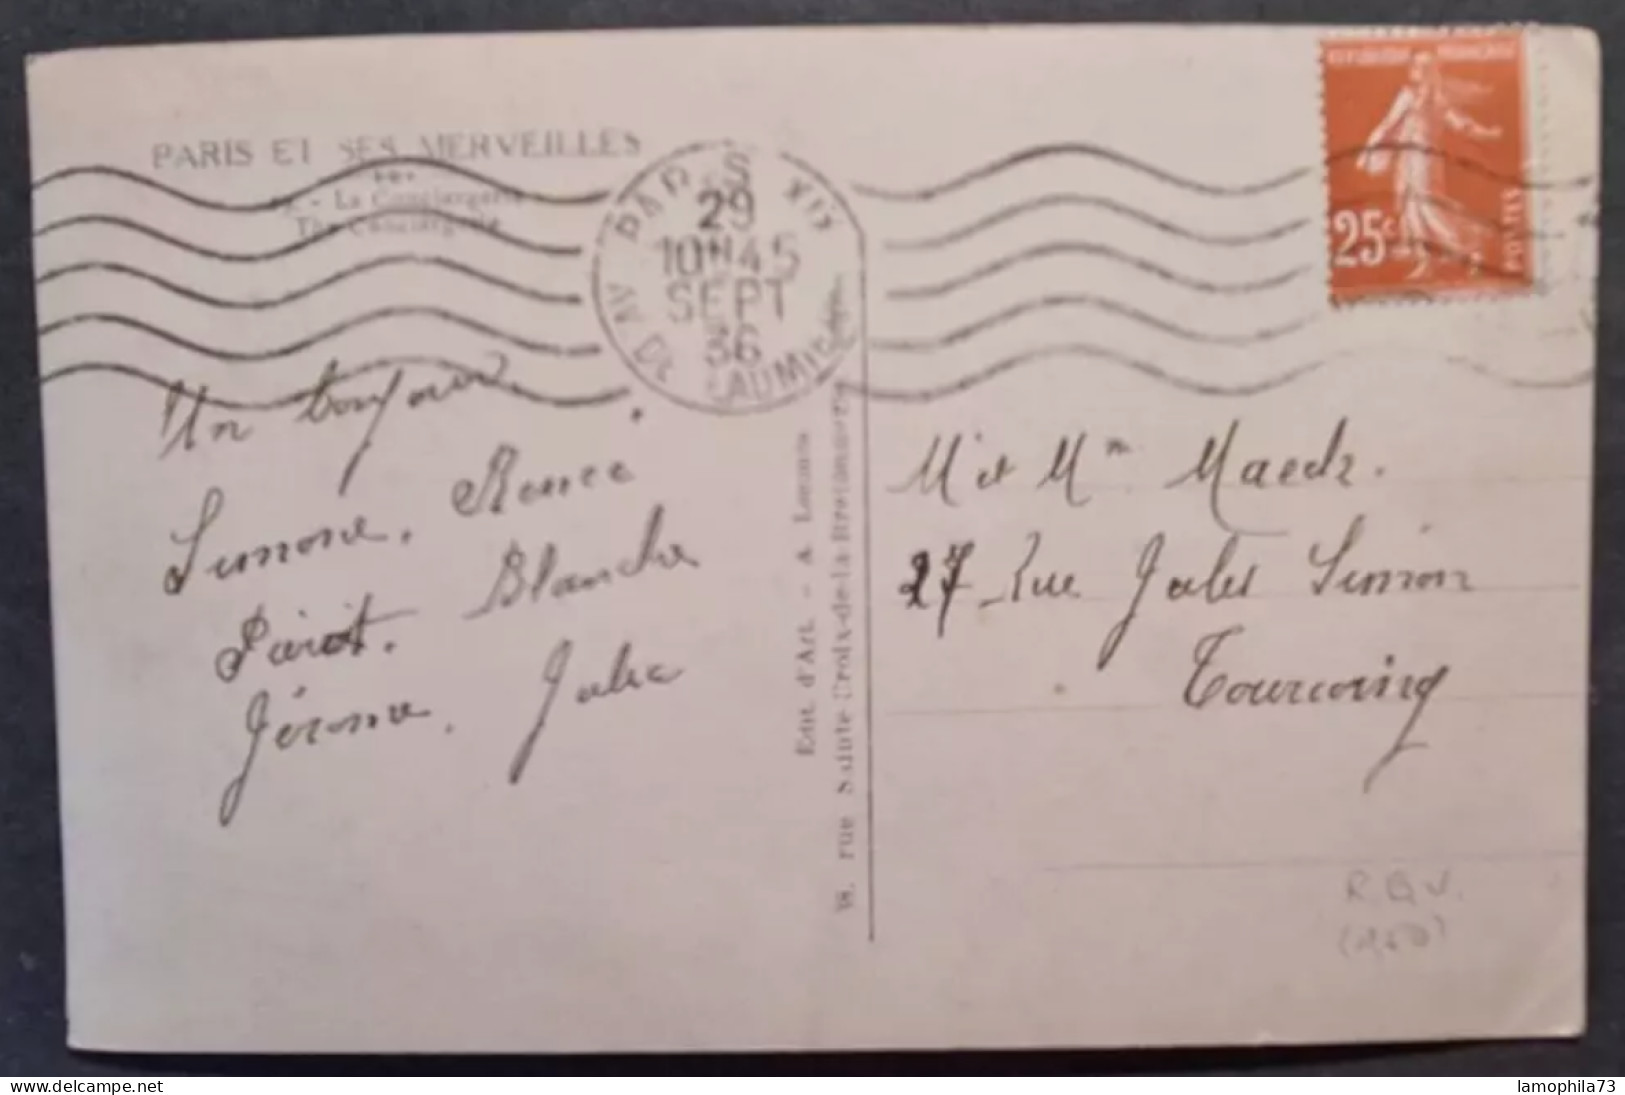 PARIS ET SES MERVEILLES
La Conciergerie
The Conciergerie
PARIS XIX
29
10H45
SEPT
36
AV DE LAUMIERE
REPUBLIQUE FRANÇAISE
25c
POSTES
Un bonjour
Simone. Renée
Blanche
Jérome. Jules
Edit. d'Art. - A. Leconte
38, rue Sainte-Croix-de-la-Bretonnerie
Mr et Mme Maeck.
27 Rue Jules Simon
Tourcoing
R B V.
www.delcampe.net
lamophila73